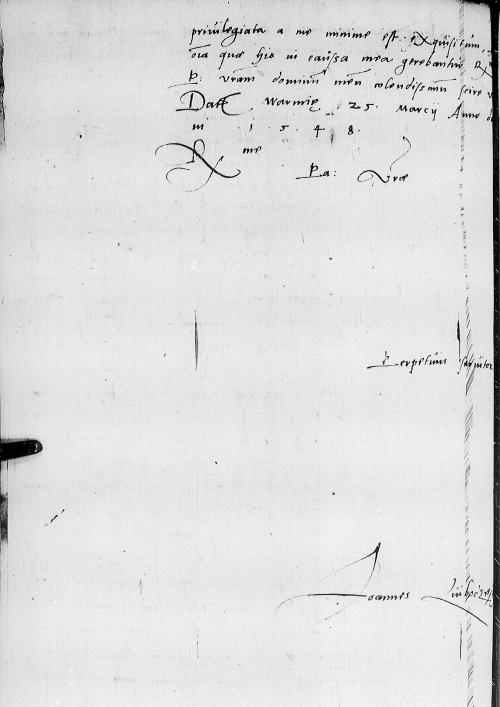 privilegiata a me minime est exquisitum
oīa quæ hic in caussa mea gerebantur
P: vram dominum meū colendissimū scire
Datt Warmię 25. Marcij Anno
in 1 5 4 8.
Rx me
Pa: Vræ
Perpetuus servitor
Joannes